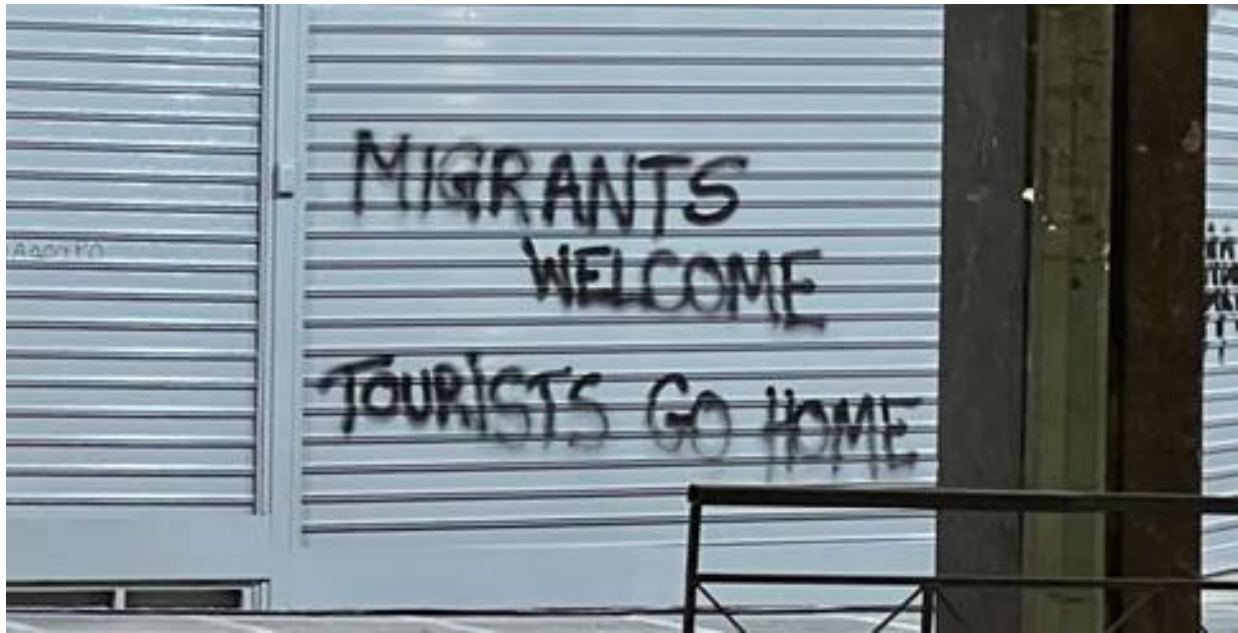 MIGRANTS
WELCOME
TOURISTS GO HOME